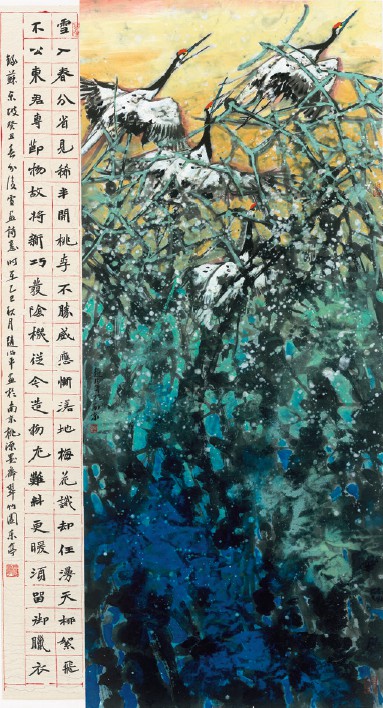 雪入春分省見稀半開桃李不勝威應慚落地梅花識却作漫天柳絮飛
不分東君專節物故將新巧發陰機從今造物尤難料更暖須留御臘衣
錄蘇東坡癸丑春分後雪詩意時在乙巳秋月 於南京桃源 齋翠竹園